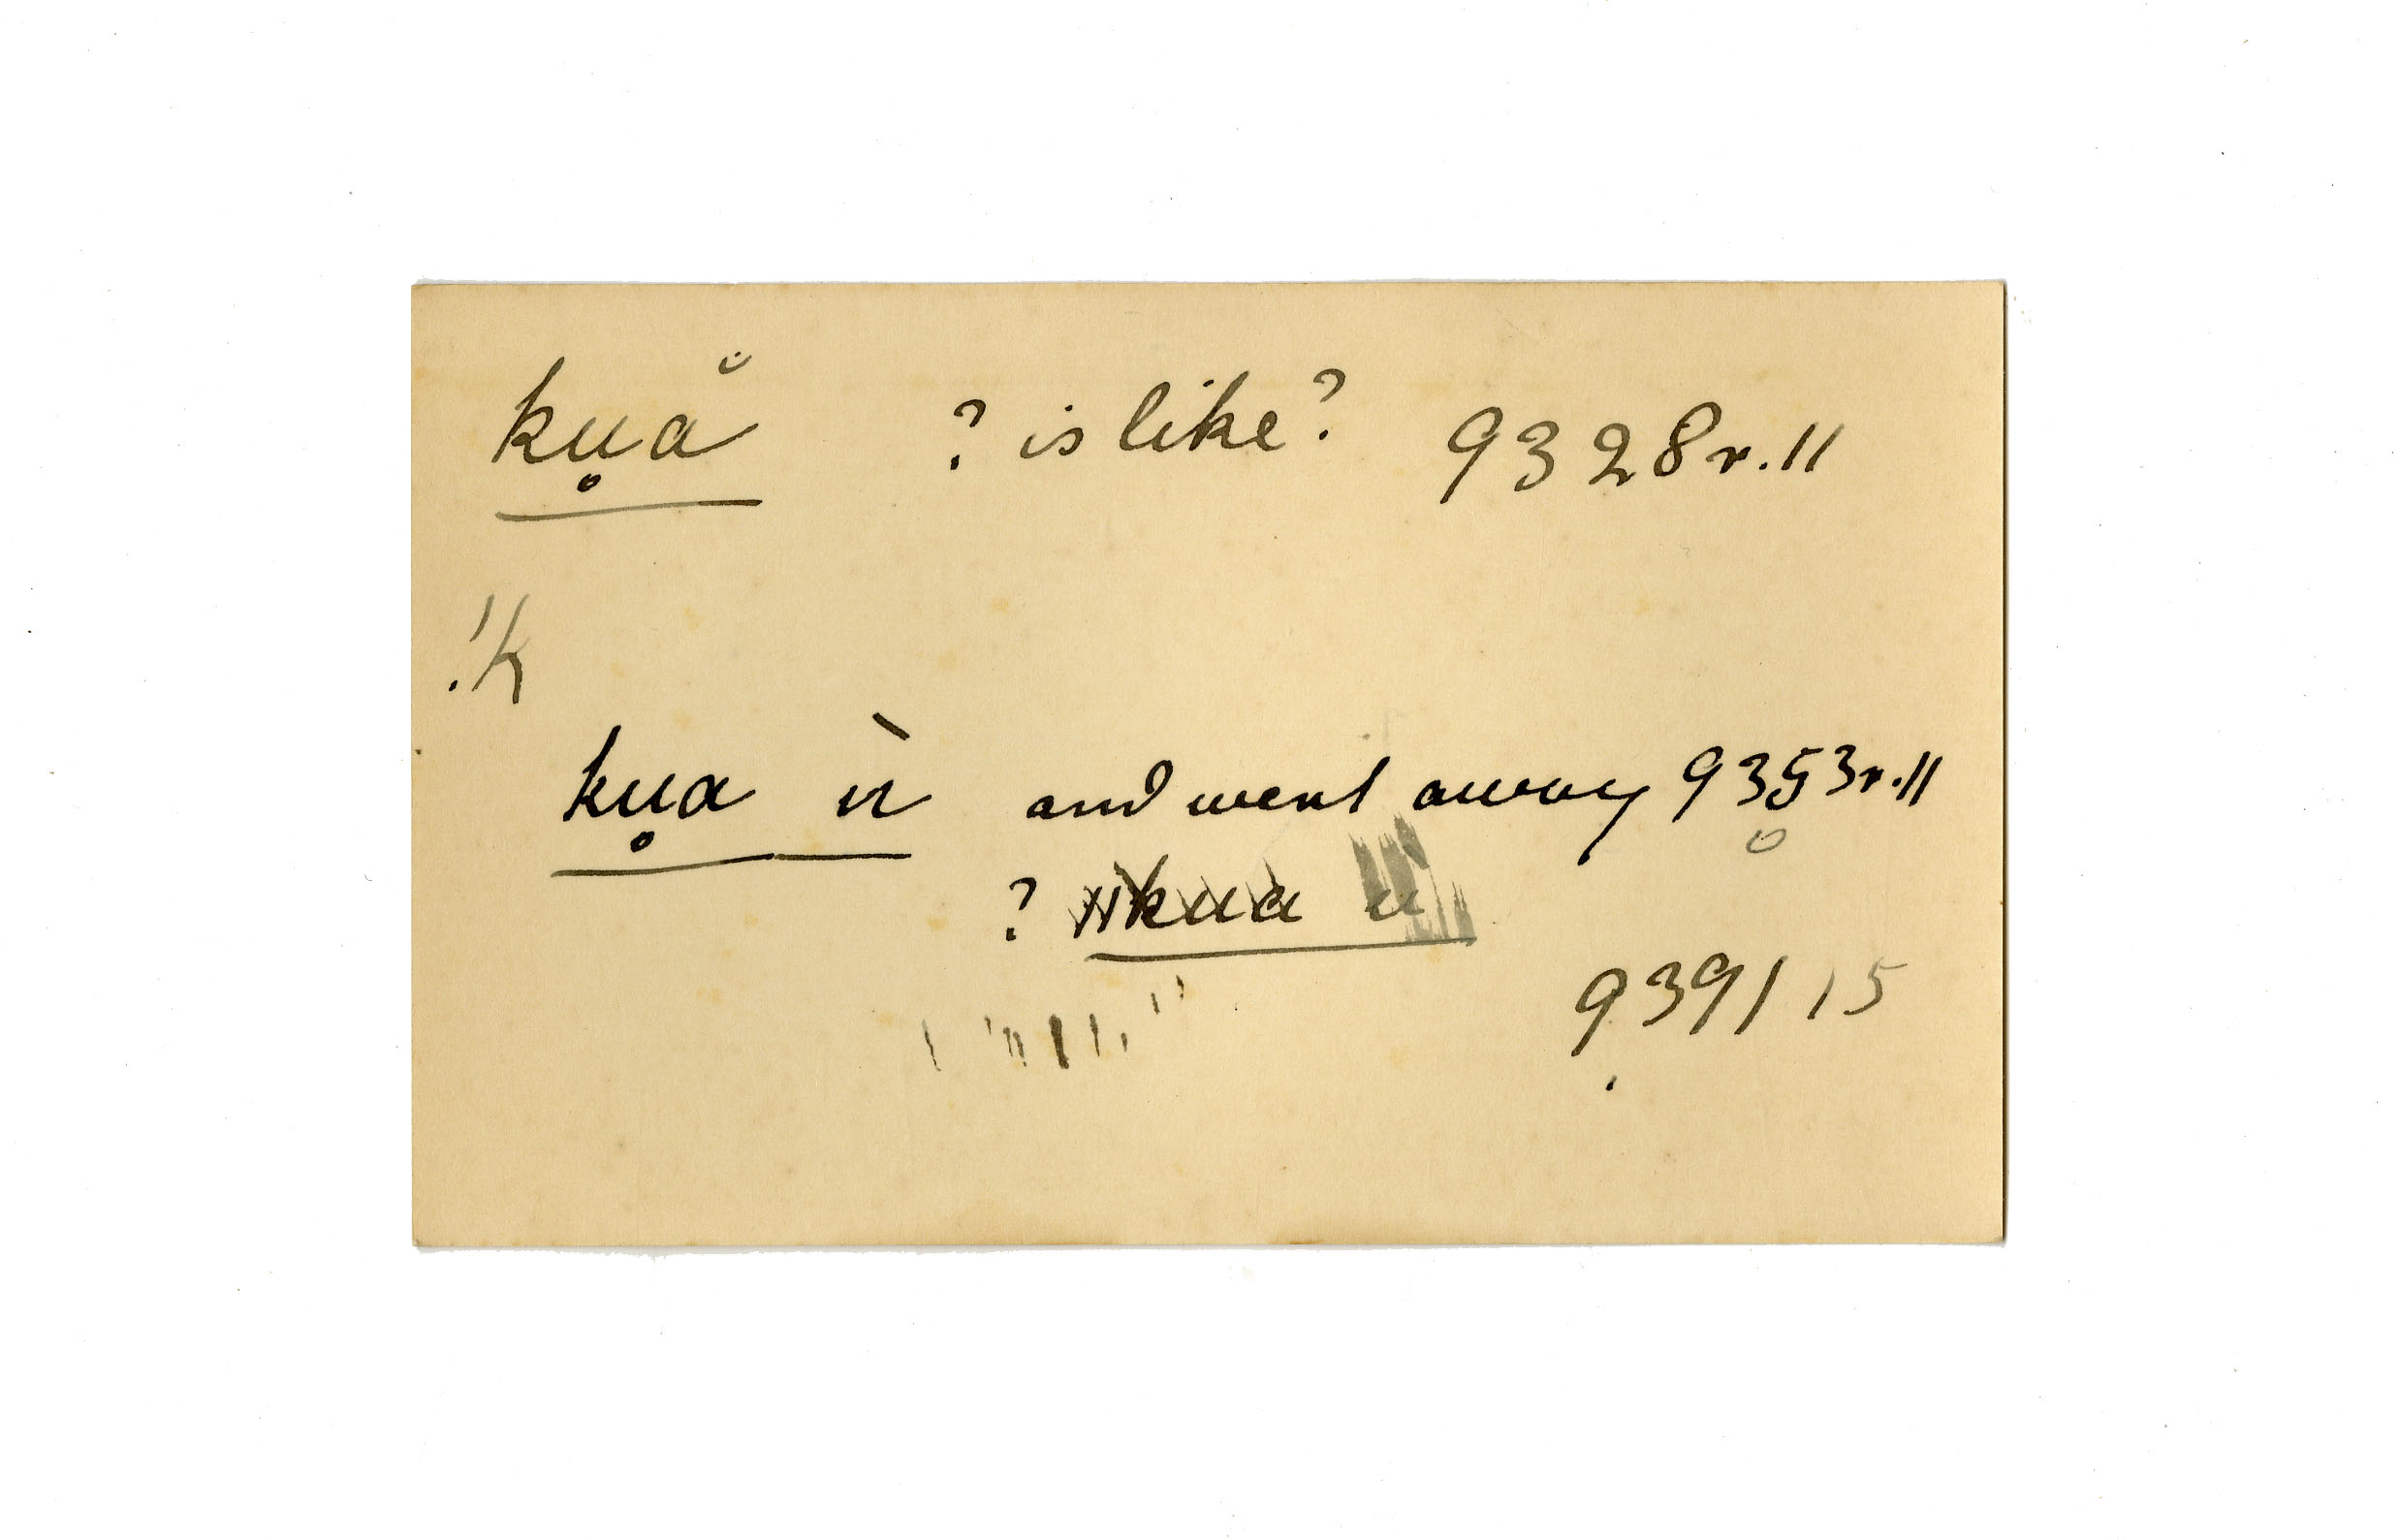 ku̥ă ? is like? 9328 r. 11
!k
ku̥a ù and went away 9353 r. 11
? ǁkua u
9391 15